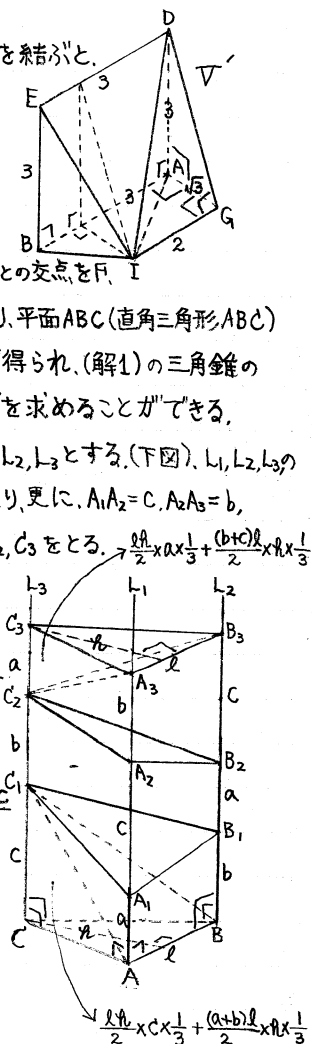 を結ぶと,
D
V′
E
3
3
3
A
√3
3
G
B
I
2
との交点をF,
り、平面ABC(直角三角形ABC)
得られ、(解1)の三角錐の
を求めることができる,
L2,L3とする,(下図)、L1,L2,L3,の
り、更に、A1A2=C,A2A3=b,
C3をとる.
ℓh/2×a×1/3+(b+c)ℓ/2×h×1/3
L3 L1 L2
C3
B3
h
ℓ
a
A3
C2
b
C
b
A2
B2
C1
a
B1
C
C
b
A1
a
C
h
B
ℓ
A
ℓh/2×C×1/3+(a+b)ℓ/2×h×1/3